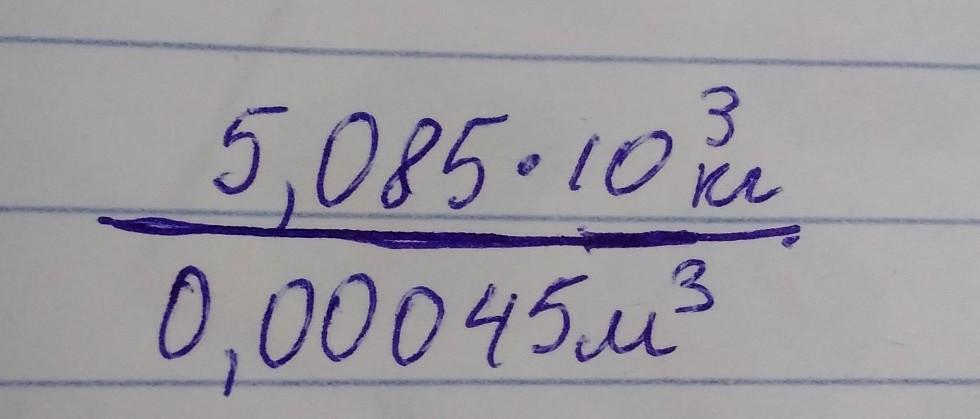 5,085·10³кг
0,00045м³